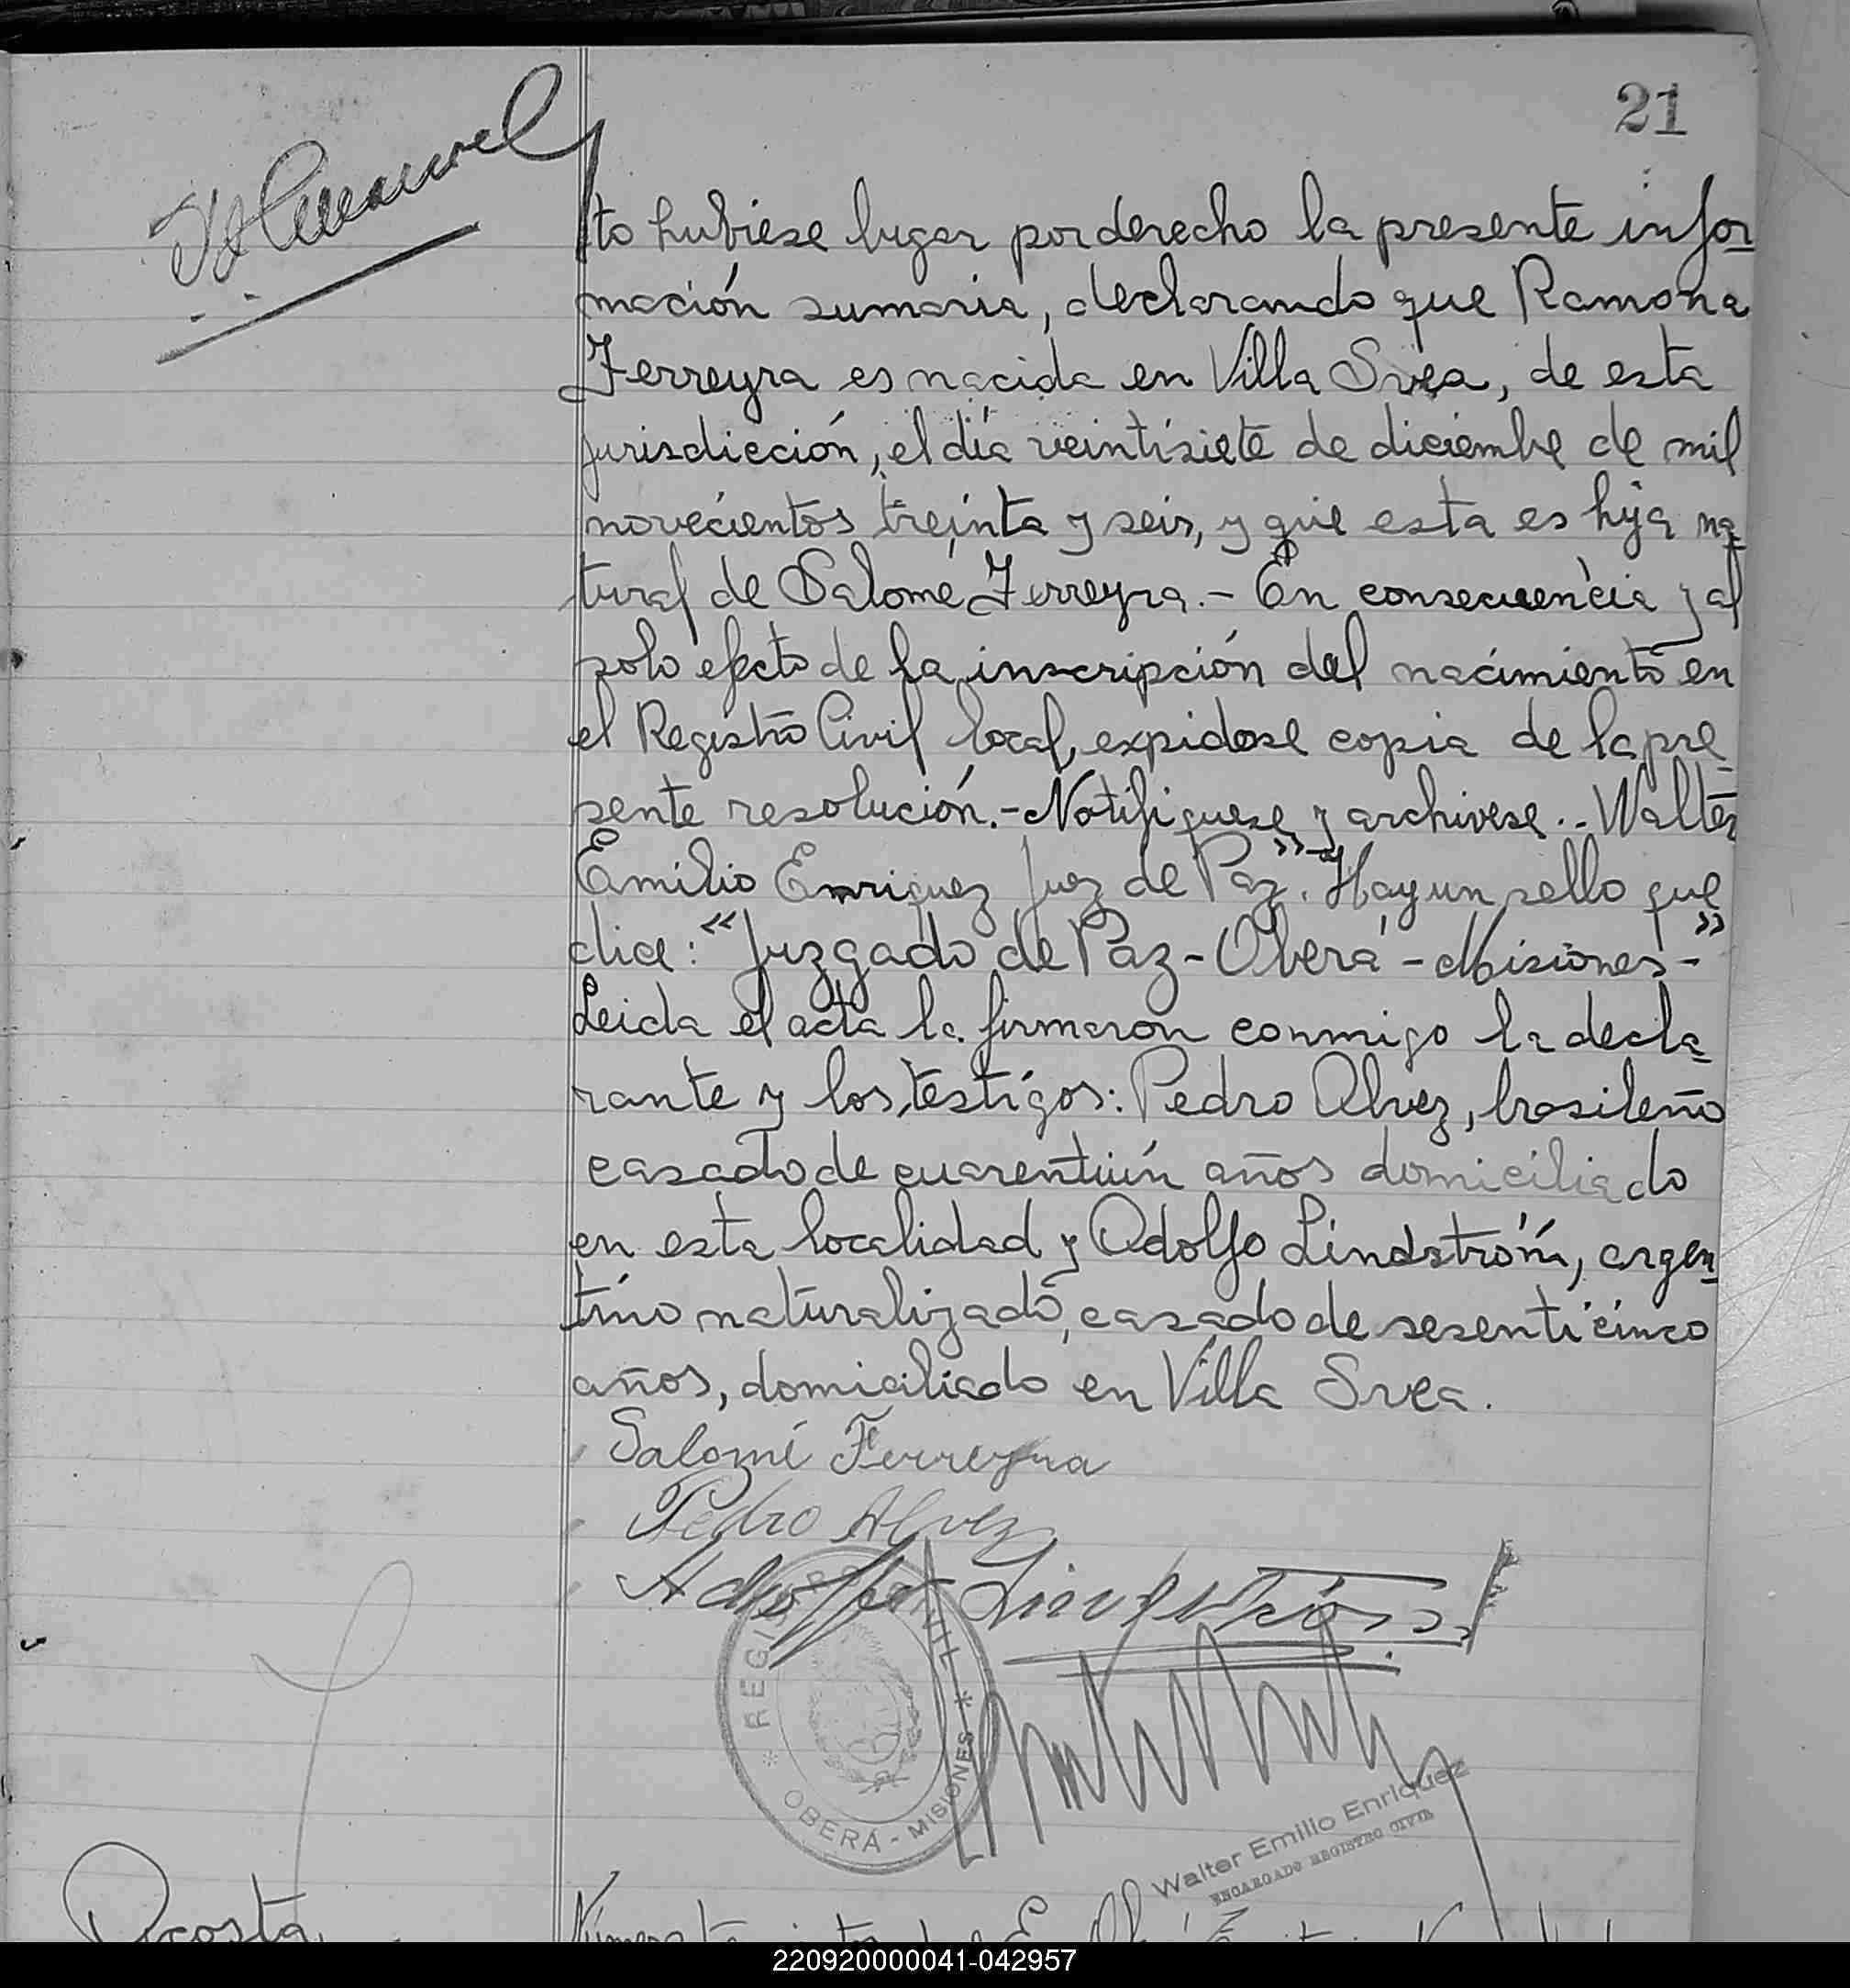 21
to hubiese lugar por derecho la presente infor
mación sumaria, declarando que Ramona
Ferreyra es nacida en Villa Svea, de esta
jurisdicción, el día veintisiete de diciembre de mil
novecientos treinta y seis, y que esta es hija na
tural de Salomé Ferreyra.- En consecuencia y al
solo efecto de la inscripción del nacimiento en
el Registro Civil local, expidase copia de la pre
sente resolución.- Notifiquese y archivese.- Walter
Emilio Enriquez Juez de Paz".- Hay un sello que
dice: "Juzgado de Paz - Oberá - Misiones -"
Leida el acta la firmaron conmigo la decla
rante y los testigos: Pedro Alvez, brasileño
casado de cuarentiún años domiciliado
en esta localidad y Adolfo Lindström, argen
tino naturalizado, casado de sesenticinco
años, domiciliado en Villa Svea.
Salomé Ferreyra
Pedro Alvez
Adolfo Lindström
REGISTRO CIVIL
OBERÁ - MISIONES
Walter Emilio Enriquez
ENCARGADO REGISTRO CIVIL
Acosta
220920000041-042957